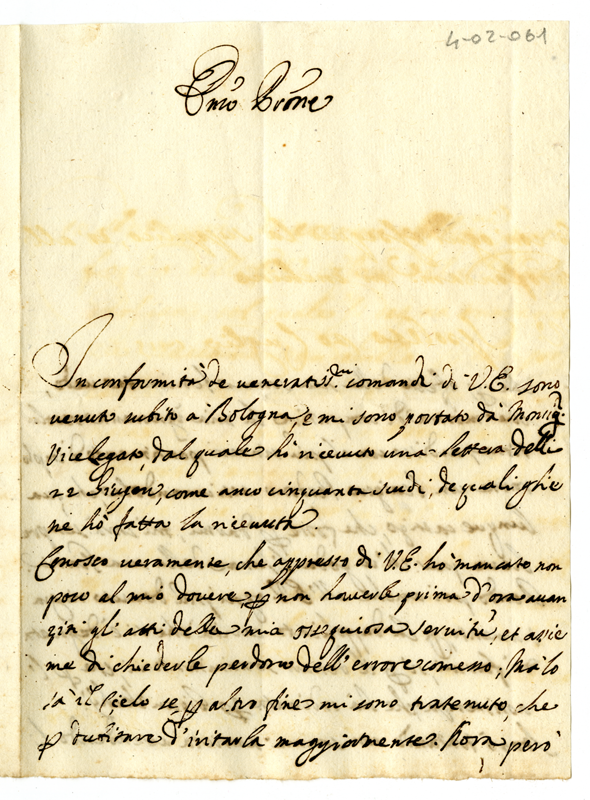 4-02-061
Prone
In conformità de venerati comandi di V.E. sono
venuto subito à Bologna, e mi sono portato dà Monsig.r
Vicelegato, dal quale hò ricevuto una lettera delli
22 come anco cinquanta scudi, de quali ghe
ne hò fatta la ricevuta.
Conosco veramente, che appresso di V.E. hò mancato non
poco al mio dovere p non haverle prima d'ora avan
gl'atti della mia ossequiosa servitù, et assie
me di chiederle perdono dell'errore comesso; Mà lo
sà il Cielo se p altro fine mi sono tratenuto, che
p dubitare d'iritarla maggiormente. Hora però